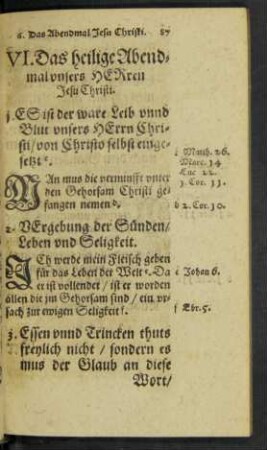 6. Das Abendmal Jesu Christi. 87
VI. Das heilige Abend-
mal vnsers HERren
Jesu Christi.
1. ES ist der ware Leib vnnd
Blut vnsers HErrn Chri-
sti / von Christo selbst einge-
setzt
Matth. 26.
Marc. 14
Luc 22.
1. Cor. 11.
MAn mus die vernunfft vnter
den Gehorsam Christi ge-
fangen nemen b.
b 2. Cor. 10.
2. VErgebung der Sünden /
Leben vnd Seligkeit.
ICh werde mein Fleisch geben
für das Leben der Welt e. Da
er ist vollendet / ist er worden
allen die jm Gehorsam sind / ein vr-
sach zur ewigen Seligkeit f.
e Johan 6.
f Ebr. 5.
3. Essen vnnd Trincken thuts
freylich nicht / sondern es
mus der Glaub an diese
Wort /